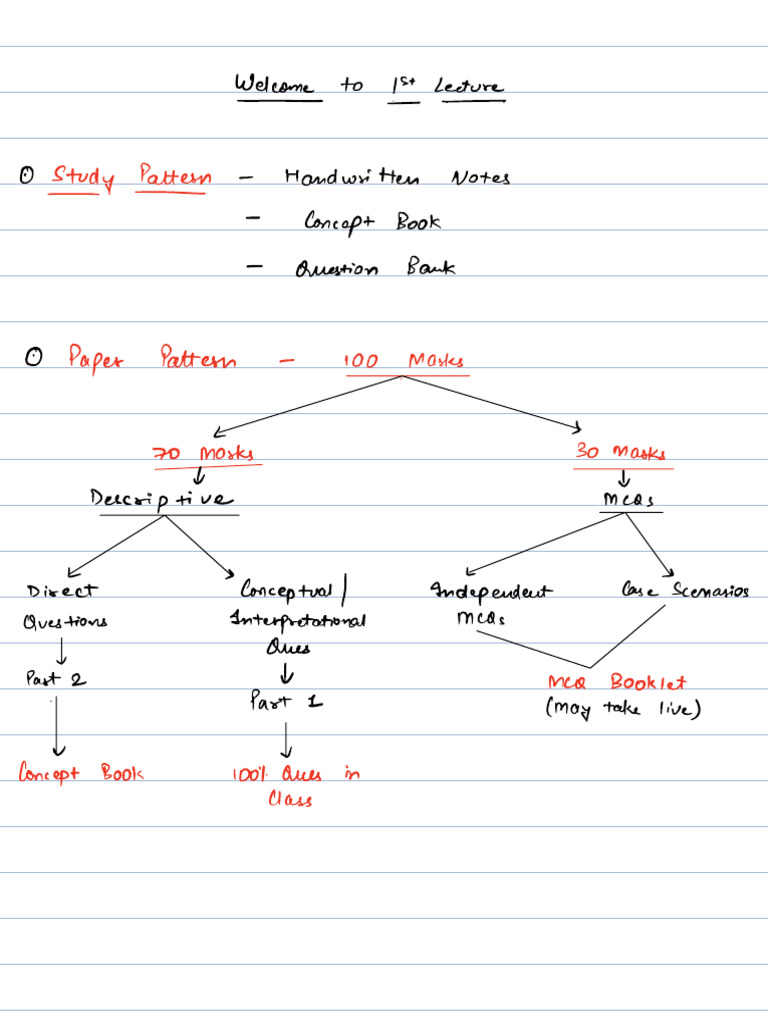 Welcome to 1st Lecture
⊙ Study Pattern - Handwritten Notes
- Concept Book
- Question Bank
⊙ Paper Pattern - 100 Marks
70 Marks 30 Marks
Descriptive MCQs
Direct Conceptual/ Independent Case Scenarios
Questions Interpretational MCQs
Ques
Part 2 MCQ Booklet
Part 1 (may take live)
Concept Book 100% Ques in
Class